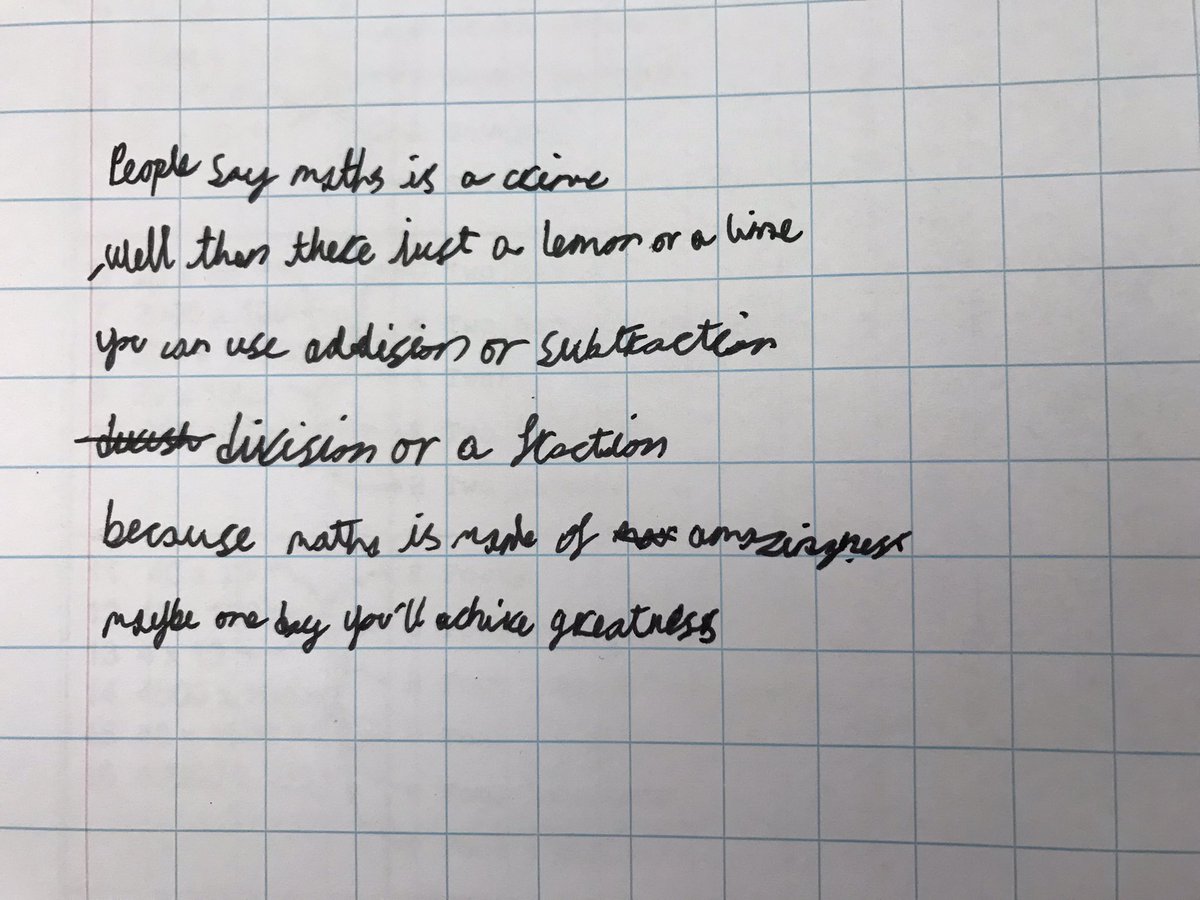 People say maths is a crime
,well then there just a lemon or a lime
you can use addision or subtraction
division or a fraction
because maths is made of amazingness
maybe one day you'll achive greatness